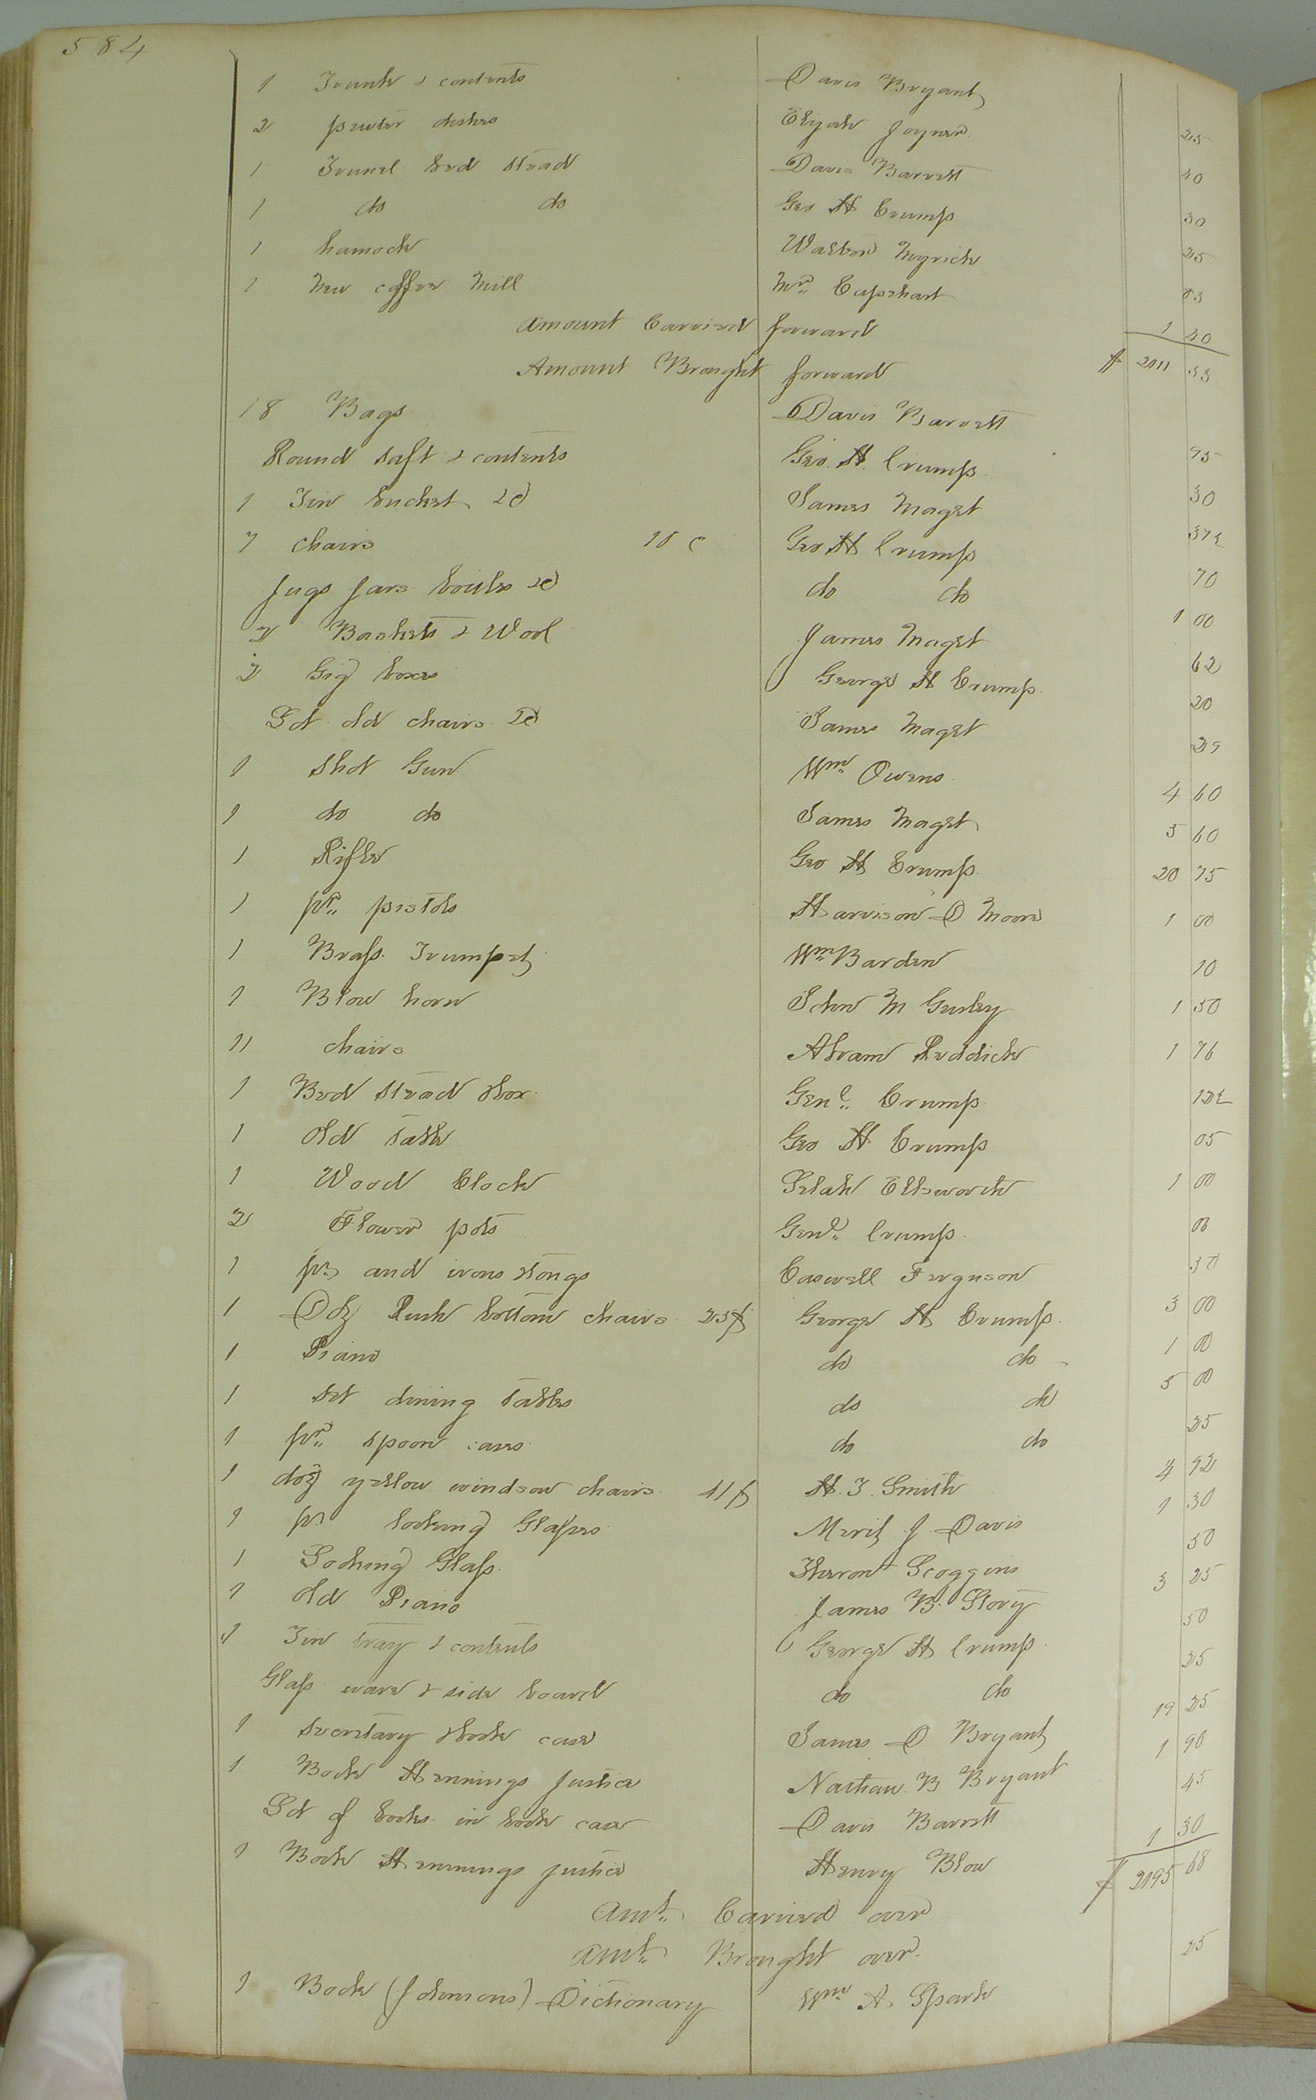 584
1 Trunk & contents Davis Bryant
2 pewter dishes Elijah Joyner 25
1 Trunel bed stead Davis Barrett 40
1 do do Geo H Crump 50
1 hamock Walton Myrick 25
1 New coffee Mill Mrs. Capehart 83
Amount Carried forward 1 40
Amount Brought forward $ 2011 33
18 Bags Davis Barrett
Round saft & contents Geo. H. Crump 95
1 Tin bucket &c James Maget 50
7 chairs 10 c Geo H Crump 37½
Jugs Jars bottles &c do do 70
2 Baskets & Wool James Maget 1 00
2 Gig boxes George H Crump 62
Lot old chairs &c James Maget 20
1 Shot Gun Wm Owens 25
1 do do James Maget 4 60
1 Rifle Geo H Crump 5 60
1 pr. pistols Harrison D Moore 20 75
1 Brass Trumpet Wm Barden 1 00
1 Blow horn John M Gurley 10
11 chairs Abram Reddick 1 50
1 Bed stead & box Genl. Crump 1 76
1 old table Geo H Crump 12½
1 Wood Clock Selah Ellsworth 05
2 Flower pots Genl. Crump 1 00
1 pr. and irons & tongs Caswell Ferguson
1 Doz Rush bottom chairs 25 George H Crump 3 00
1 Piano do do 1 00
1 set dining tables do do 5 00
1 pr. spoon cases do do 25
1 doz yellow windsor chairs 41 H. T. Smith 4 92
1 pr looking Glasses Merit J Davis 1 30
1 Looking Glass Theron Scoggins 50
1 old Piano James B. Story 3 25
1 Tin tray & contents George H Crump 50
Glass ware & side board do do 25
1 Secretary & book case James D Bryant 19 25
1 Book Hennings Justice Nathan B Bryant 1 90
Lot of books in book case Davis Barrett 45
1 Book Hennings Justice Henry Blow 1 30
Amt. Carried over $ 2195 68
Amt. Brought over
1 Book (Johnsons) Dictionary Wm A. Spark 25